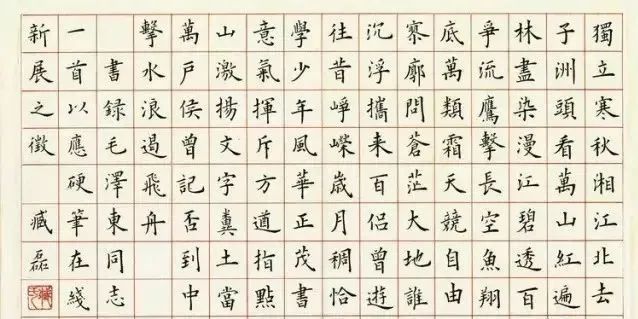 獨立寒秋湘江北去
子洲頭看萬山紅遍
林盡染漫江碧透百
爭流鷹擊長空魚翔
底萬類霜天競自由
寥廓問蒼茫大地誰
沉浮攜來百侶曾遊
往昔崢嶸歲月稠恰
學少年風華正茂書
意氣揮斥方遒指點
山激揚文字糞土當
萬戶侯曾記否到中
擊水浪遏飛舟
書録毛澤東同志
一首以應硬筆在綫
新展之徵 臧磊